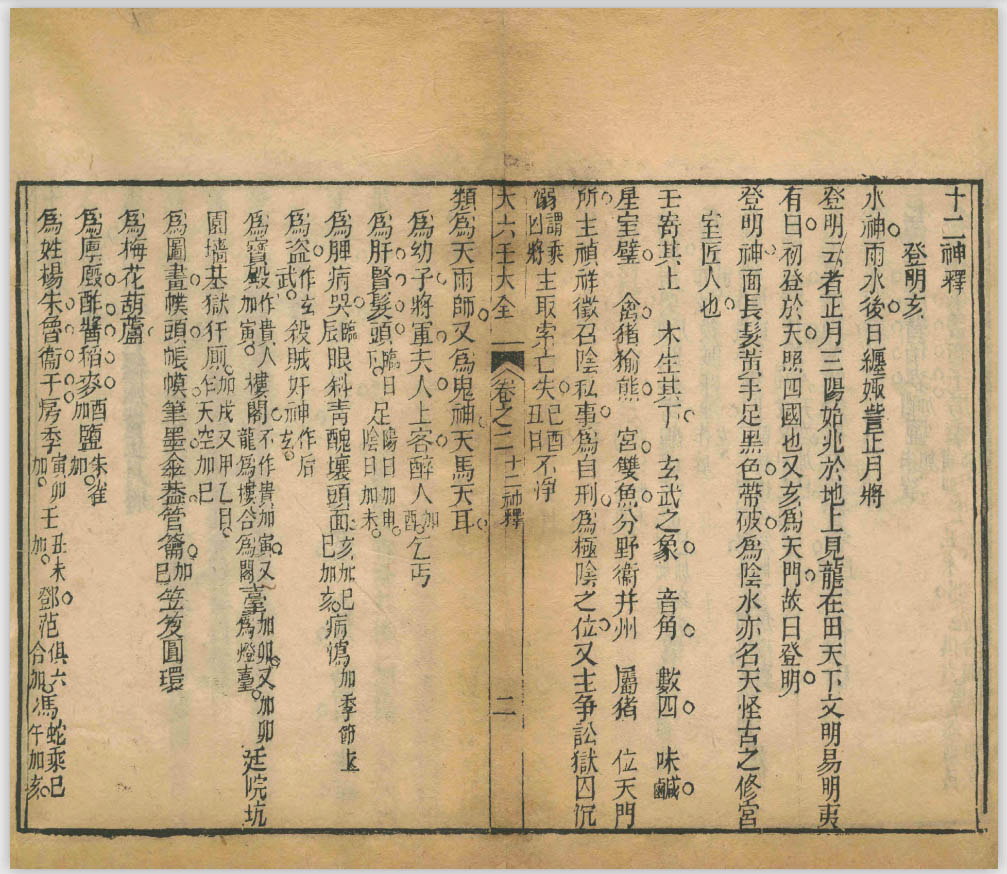 十二神釋
登明亥
水神雨水後日纏娵訾正月將
登明云者正月三陽始兆於地上見龍在田天下文明易明夷
有曰初登於天照四國也又亥爲天門故曰登明
登明神面長髮黃手足黑色帶破爲陰水亦名天怪古之修宮
室匠人也
壬寄其上 木生其下 玄武之象 音角 數四 味鹹
星室璧 禽猪㺄熊 宮雙魚分野衞幷州 屬猪 位天門
所主禎祥徵召陰私事爲自刑爲極陰之位又主争訟獄囚沉
溺謂乘凶將主取索亡失巳酉丑日不淨
大六壬大全 卷之二 十二神釋 二
類爲天雨師又爲鬼神天馬天耳
爲幼子將軍夫人上客醉人加酉乞丐
爲肝腎髮頭臨日下足陽日加申陰日加未
爲脾病哭臨辰眼斜青醜壞頭面亥加巳巳加亥病瀉加季節上
爲盜作玄武殺賊奸神作后玄
爲寶殿作貴人加寅樓閣不作貴加寅又龍爲樓合爲閣臺加卯又加卯爲燈臺廷院坑
園墻基獄犴厠加戌又甲乙日乍天空加巳
爲圖畫幞頭帳幙筆墨傘葢管籥加巳笠笈圓環
爲梅花葫蘆
爲厚廢酢醬稻麥加酉鹽朱雀加
爲姓楊朱魯衞于房季寅卯加壬丑未加鄧范俱六合加馮蛇乘巳午加亥